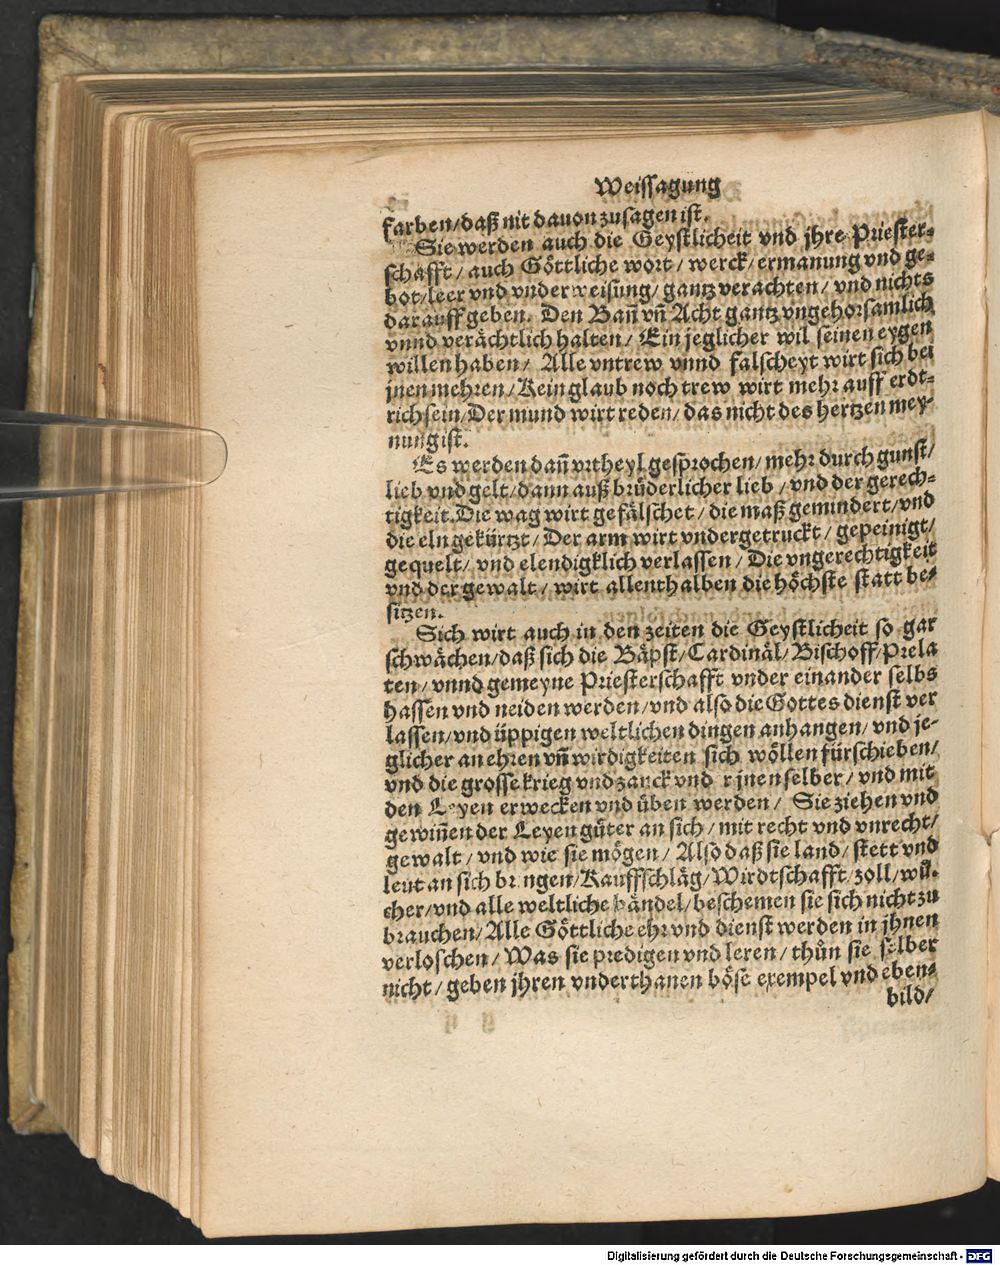 Weissagung
farben/daß nit dauon zusagen ist.
Sie werden auch die Geystlicheit vnd jhre Priester-
schafft/ auch Göttliche wort/ werck/ ermanung vnd ge-
bot/leer vnd vnderweisung/ gantz verachten/ vnd nichts
darauff geben. Den Bañ vñ Acht gantz vngehorsamlich
vnnd verächtlich halten/ Ein jeglicher wil seinen eygen
willen haben/ Alle vntrew vnnd falscheyt wirt sich bei
jnen mehren/ Kein glaub noch trew wirt mehr auff erdt-
rich sein/ Der mund wirt reden/ das nicht des hertzen mey-
nung ist.
Es werden dañ vrtheyl gesprochen/ mehr durch gunst/
lieb vnd gelt/ dann auß brüderlicher lieb/ vnd der gerech-
tigkeit. Die wag wirt gefälschet/ die maß gemindert/ vnd
die eln gekürtzt/ Der arm wirt vndergetruckt/ gepeinigt/
gequelt/ vnd elendigklich verlassen/ Die vngerechtigkeit
vnd der gewalt/ wirt allenthalben die höchste statt be-
sitzen.
Sich wirt auch in den zeiten die Geystlicheit so gar
schwächen/daß sich die Bäpst/Cardinäl/Bischoff/Prela
ten/ vnnd gemeyne Priesterschafft vnder einander selbs
hassen vnd neiden werden/vnd also die Gottes dienst ver
lassen/vnd üppigen weltlichen dingen anhangen/ vnd je-
glicher an ehren vñ wirdigkeiten sich wöllen fürschieben/
vnd die grosse krieg vnd zanck vnd jnen selber/ vnd mit
den Leyen erwecken vnd üben werden/ Sie ziehen vnd
gewiñen der Leyen güter an sich/ mit recht vnd vnrecht/
gewalt/ vnd wie sie mögen/ Also daß sie land/ stett vnd
leut an sich bringen/Kauffschläg/Wirdtschafft/zoll/wů-
cher/vnd alle weltliche händel/beschemen sie sich nicht zu
brauchen/ Alle Göttliche ehr vnd dienst werden in jhnen
verloschen/ Was sie predigen vnd leren/ thůn sie selber
nicht/ geben jhren vnderthanen böse exempel vnd eben-
bild/
Digitalisierung gefördert durch die Deutsche Forschungsgemeinschaft - DFG